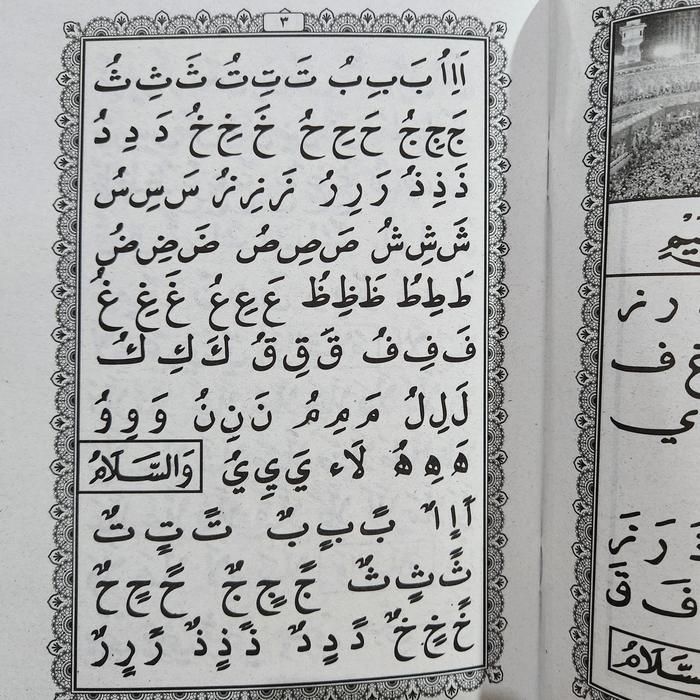 ٣
اَاِاُ بَبِبُ تَتِتُ ثَثِثُ
جَجِجُ حَحِحُ خَخِخُ دَدِدُ
ذَذِذُ رَرِرُ زَزِزُ سَسِسُ
شَشِشُ صَصِصُ ضَضِضُ
طَطِطُ ظَظِظُ عَعِعُ غَغِغُ
فَفِفُ قَقِقُ كَكِكُ
لَلِلُ مَمِمُ نَنِنُ وَوِوُ
هَهِهُ لَاء يَيِيُ وَالسَّلَامُ
اًاٍاٌ بًبٍبٌ تًتٍتٌ
ثًثٍثٌ جًجٍجٌ حًحٍحٌ
خًخٍخٌ دًدٍدٌ ذًذٍذٌ رًرٍرٌ
ر ز
ف
ي